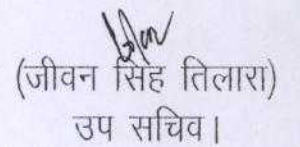 (जीवन सिंह तिलारा)
उप सचिव।